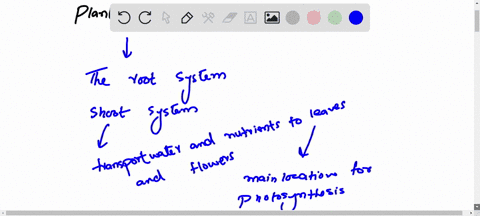 The root system
Shoot system
transport water and nutrients to leaves
and flowers
main location for
Photosynthesis